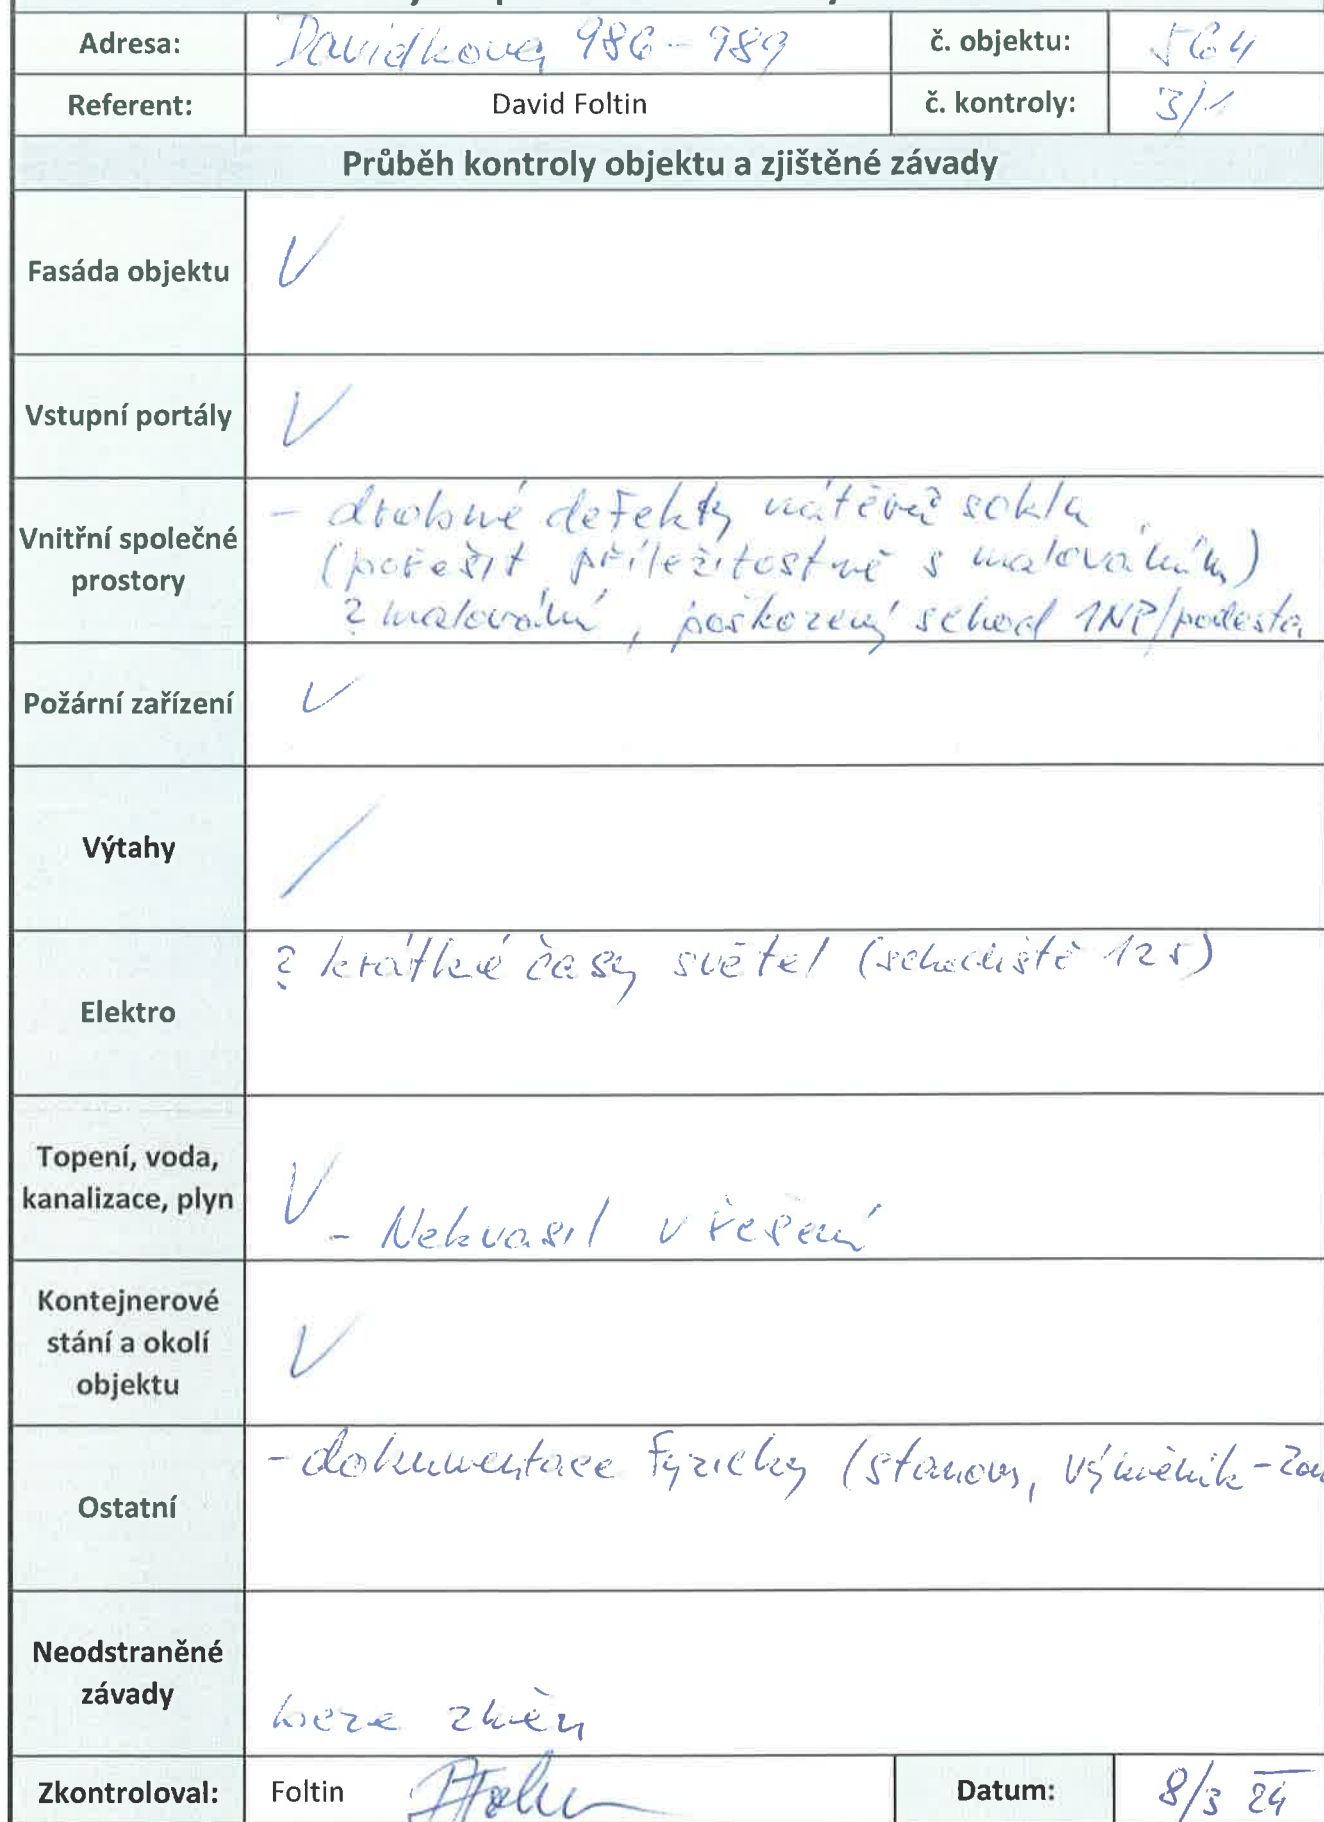 Adresa: Davídkova 986-989 č. objektu: 564
Referent: David Foltin č. kontroly: 3/1
Průběh kontroly objektu a zjištěné závady
Fasáda objektu V
Vstupní portály V
- drobné defekty nátěrů soklu
Vnitřní společné prostory (pořešit příležitostně s malováním)
? malování, poškozený schod 1NP/podesta
Požární zařízení V
Výtahy /
? krátké časy světel (schodiště 12s)
Elektro
Topení, voda,
kanalizace, plyn V
- Nekvasil v řešení
Kontejnerové
stání a okolí
objektu V
- dokumentace fyzicky (stanov, výměník-
Ostatní
Neodstraněné
závady
beze změn
Zkontroloval: Foltin Datum: 8/3 24